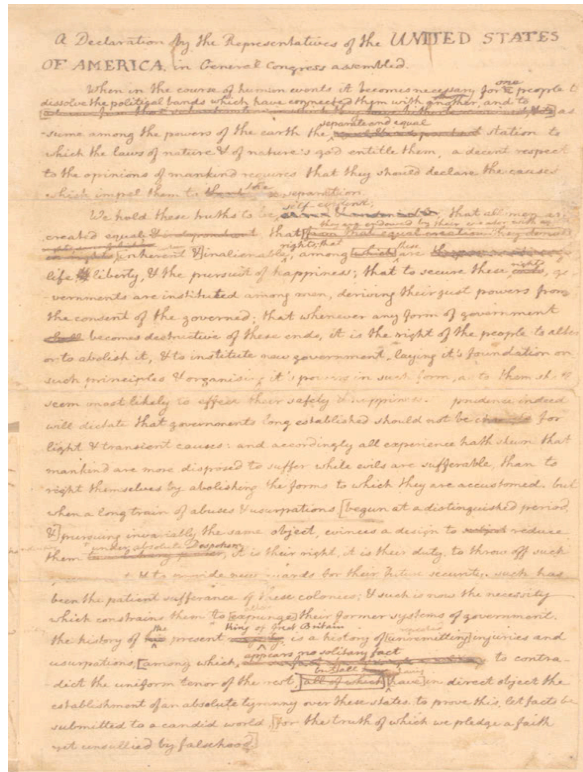 A Declaration by the Representatives of the UNITED STATES
OF AMERICA, in General Congress assembled.
When in the course of human events it becomes necessary for one people to
dissolve the political bands which have connected them with another, and to
as
separate and equal
-sume among the powers of the earth the station to
which the laws of nature & of nature's god entitle them, a decent respect
to the opinions of mankind requires that they should declare the causes
which impel them to the separation.
self-evident;
We hold these truths to be that all men are
they are endowed by their creator with
created equal & independant; that from that equal creation they derive
rights; that these
inherent & inalienable among which are
life & liberty, & the pursuit of happiness; that to secure these ends, go-
vernments are instituted among men, deriving their just powers from
the consent of the governed; that whenever any form of government
shall becomes destructive of these ends, it is the right of the people to alter
or to abolish it, & to institute new government, laying it's foundation on
such principles & organising it's powers in such form, as to them shall
seem most likely to effect their safety & happiness. prudence indeed
will dictate that governments long established should not be changed for
light & transient causes: and accordingly all experience hath shewn that
mankind are more disposed to suffer while evils are sufferable, than to
right themselves by abolishing the forms to which they are accustomed. but
when a long train of abuses & usurpations [begun at a distinguished period,
&] pursuing invariably the same object, evinces a design to subject reduce
under absolute Despotism
them it is their right, it is their duty, to throw off such
& to provide new guards for their future security. such has
been the patient sufferance of these colonies; & such is now the necessity
which constrains them to [expunge] their former systems of government.
the King of Great Britain
the history of his present is a history of [unremitting] injuries and
appears no solitary fact
usurpations, [among which, to contra-
dict the uniform tenor of the rest, all of which [have] in direct object the
establishment of an absolute tyranny over these states. to prove this, let facts be
submitted to a candid world, [for the truth of which we pledge a faith
yet unsullied by falsehood]